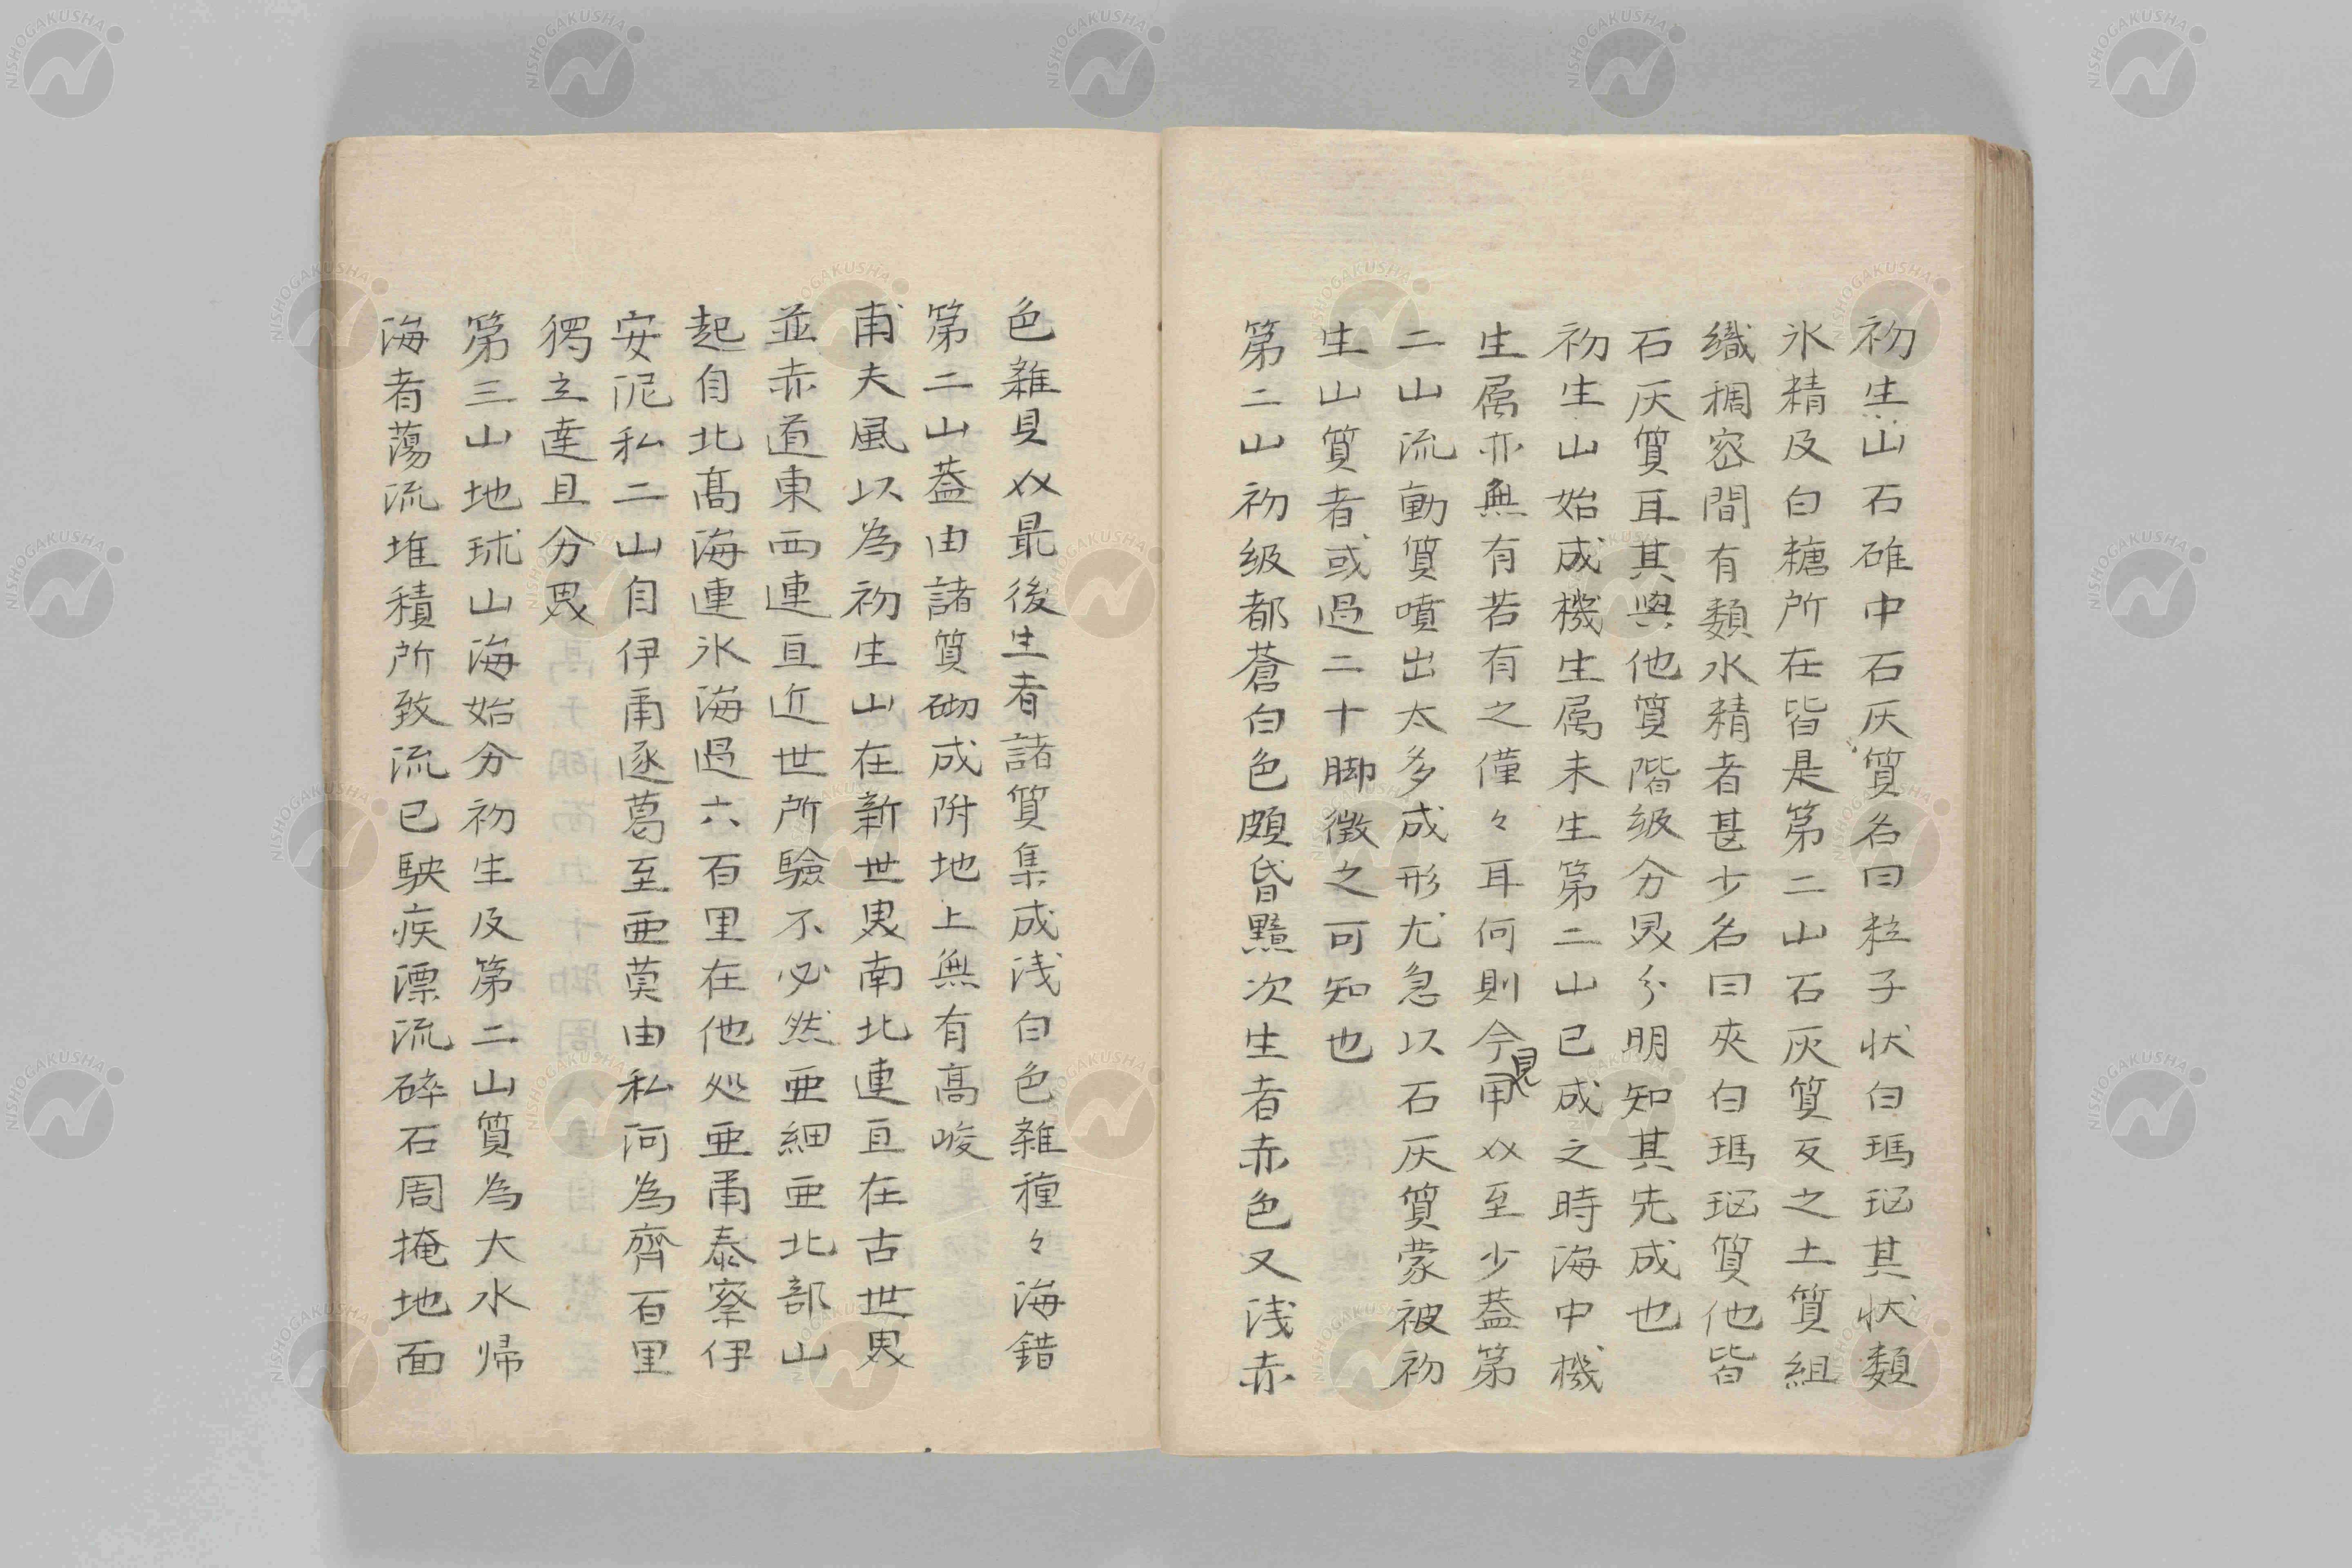 初生山石碓中石灰質名曰粒子状白瑪瑙其状類
氷精及白糖所在皆是第二山石灰質反之土質組
織稠密間有類水精者甚少名曰夾白瑪瑙質他皆
石灰質耳其與他質階級分界分明知其先成也
初生山始成機生属未生第二山已成之時海中機
生属亦無有若有之僅々耳何則今見甲㸚至少蓋第
二山流動質噴出太多成形尤急以石灰質蒙被初
生山質者或過二十脚徴之可知也
第二山初级都蒼白色頗昏黯次生者赤色又浅赤
色雜貝㸚最後生者諸質集成浅白色雜種々海錯
第二山蓋由諸質砌成附地上無有髙峻
甫夫風以為初生山在新世界南北連亘在古世界
並赤道東西連亘近世所驗不必然亜細亜北部山
起自北髙海連氷海過六百里在他処亜甫泰察伊
安泥私二山自伊甫逐葛至亜莫由私河為齊百里
獨立達且分界
第三山地球山海始分初生及第二山質為大水帰
海者蕩流堆積所致流已駛疾漂流碎石周掩地面
NISHOGAKUSHA